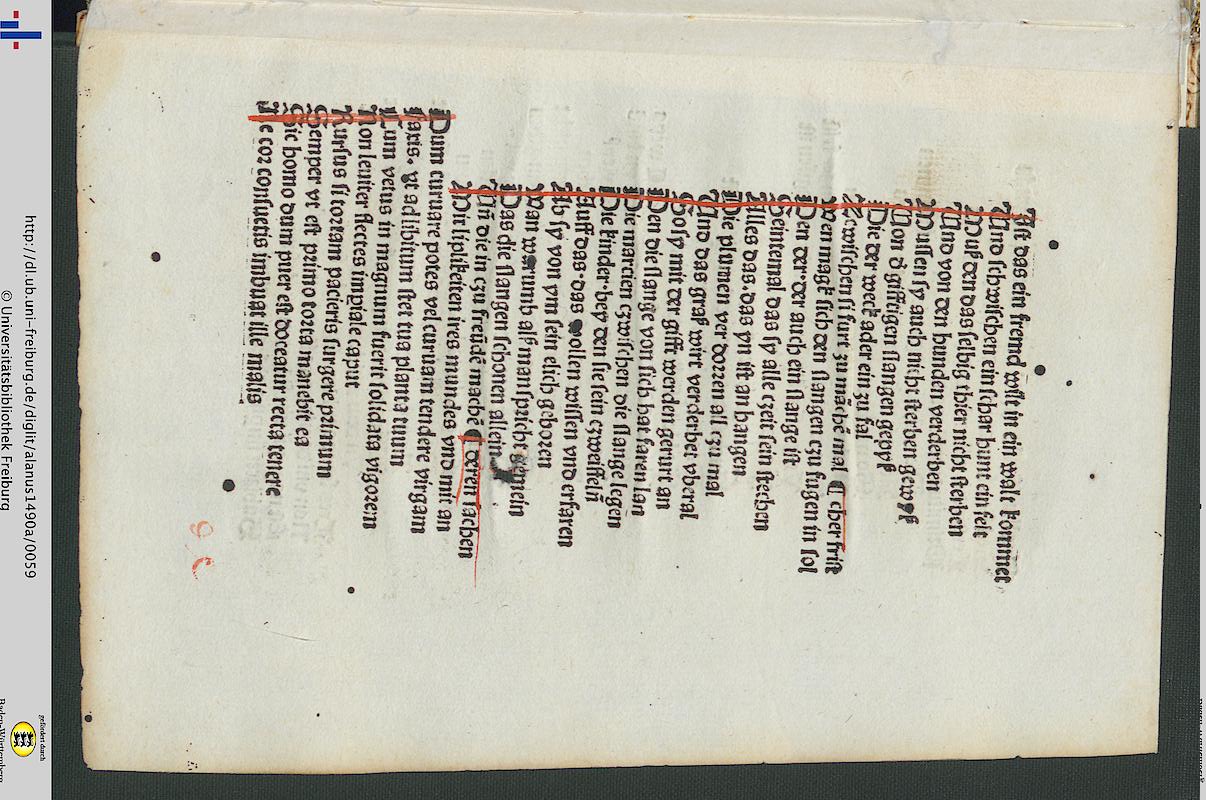 Ist das ein fremd wist in ein walt kommet
Und schwischen ein schar hunt ein felt
Muß den das selbig thier nicht sterben
Und von den hunden verderben
Mussen sy auch nicht sterben gewyß
Von d' gifftigen slangen gepyß
Die der weck ader ein zu fal
Zwischen si furt zu mãchẽ mal ¶ cher frist
Wen magk sich den slangen czu fugen in sol
Den der·der auch ein slange ist
Seintemal das sy alle czeit sein stechen
Alles das·das yn ist an hangen
Die plumen ver dorren all czu mal
Und das graß wirt verderbet vberal
So sy mit der gifft werden gerurt an
Den die slange von sich hat faren lan
Die marcien czwischen die slange legen
Die kinder·bey den sie sein czweiffeln̄
Auff das·das wollen wissen vnd erfaren
Ab sy von ym sein elich geboren
Wan worumb alß man spricht gemein
Das die slangen schonen allein
Un̄ die in czu freudẽ machẽ ¶ deren sachen
Die liplikeiten ires mundes vnd mit an
Dum curuare potes vel curuam tendere virgam
Faxis. vt ad libitum stet tua planta tuum
Cum vetus in magnum fuerit solidata vigorem
Non leuiter flectes imp̱iale caput
Rursus si tortam pacieris surgere primum
Semper vt est primo torta manebit ea
Sic homo dum puer est doceatur recta tenere
Ne cor consuetis imbuat ille malis
http://dl.ub.uni-freiburg.de/diglit/alanus1490a/0059
© Universitätsbibliothek Freiburg
gefördert durch
Baden-Württemberg